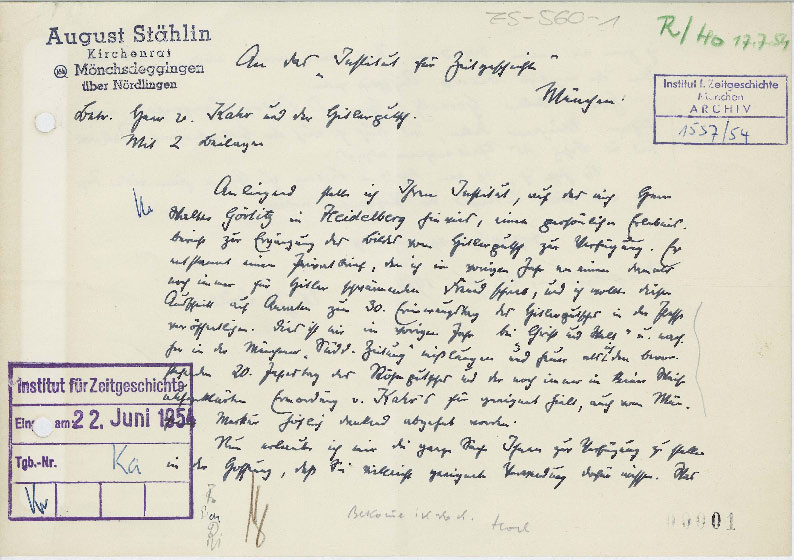 ZS-560-1
R/Ho 17.7.54
August Stählin
Kirchenrat
Mönchsdeggingen
über Nördlingen
An das "Institut für Zeitgeschichte"
München.
Institut f. Zeitgeschichte
München
ARCHIV
1557/54
Betr. Herr v. Kahr und der Hitlerputsch.
Mit 2 Beilagen
Anliegend stelle ich Ihrem Institut, auf das mich Herr
Walter Görlitz in Heidelberg hinwies, einen persönlichen Erlebnis-
bericht zur Ergänzung des Bildes vom Hitlerputsch zur Verfügung. Er
entstammt einem Privatbrief, den ich im vorigen Jahr an einen damals
noch immer für Hitler schwärmenden Freund schrieb, und ich wollte diesen
Ausschnitt auf Anraten zum 30. Erinnerungstag des Hitlerputsches in der Presse
veröffentlichen. Dies ist mir im vorigen Jahr bei "Christ und Welt" u. nach-
her in der Münchner "Südd. Zeitung" mißlungen und heuer, als ich den bevor-
stehenden 20. Jahrestag des Röhmputsches und der noch immer in keiner Weise
aufgeklärten Ermordung v. Kahr's für geeignet hielt, auch vom Mün.
Merkur höflich dankend abgelehnt worden.
Nun erlaube ich mir die ganze Sache Ihnen zur Verfügung zu stellen
in der Hoffnung, daß Sie vielleicht geeignete Verwendung dafür wissen. Das
Institut für Zeitgeschichte
Eing. am 22. Juni 1954
Tgb.-Nr. Ka
00001